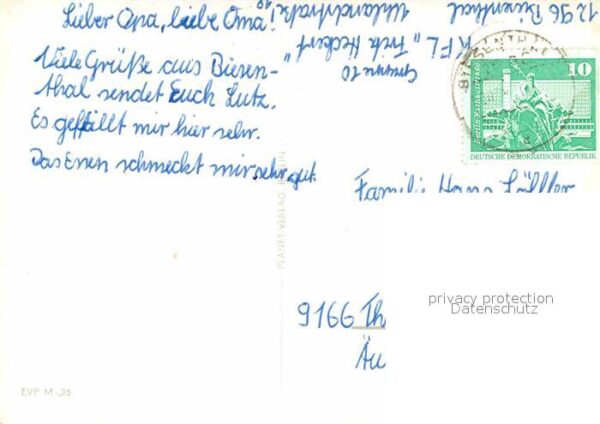 Lieber Opa, liebe Oma!
Viele Grüße aus Biesen-
thal sendet Euch Lutz.
Es gefällt mir hier sehr.
Das Essen schmeckt mir sehr gut.
1296 Biesenthal
KFL "Fritz Heckert"
Gruppe 10
10
DEUTSCHE DEMOKRATISCHE REPUBLIK
Familie Hans
9166 Th
PLANET-VERLAG BERLIN
privacy protection
Datenschutz
EVP M -,25